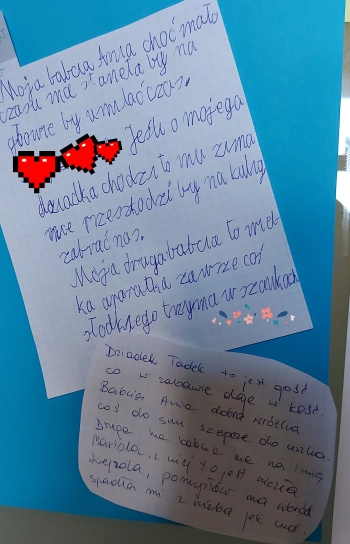 Moja babcia Ania choć mało
czasu ma stanęła by na
głowie by umilać czas.
Jeśli o mojego
dziadka chodzi to mu zima
nie przeszkodzi by na kulig
zabrać nas.
Moja druga babcia to wiel-
ka agratka zawsze coś
słodkiego trzyma w szaukach
Dziadek Tadek to jest gość
co w zabawie daje w kość.
Babcia Ania dobra wróżka
coś do snu szepcze do uszka.
Druga ma babcia ma na imię
Mariola, z niej to jest wesoła
, pomysłów ma wśród
spadła mi z nieba jak cud.